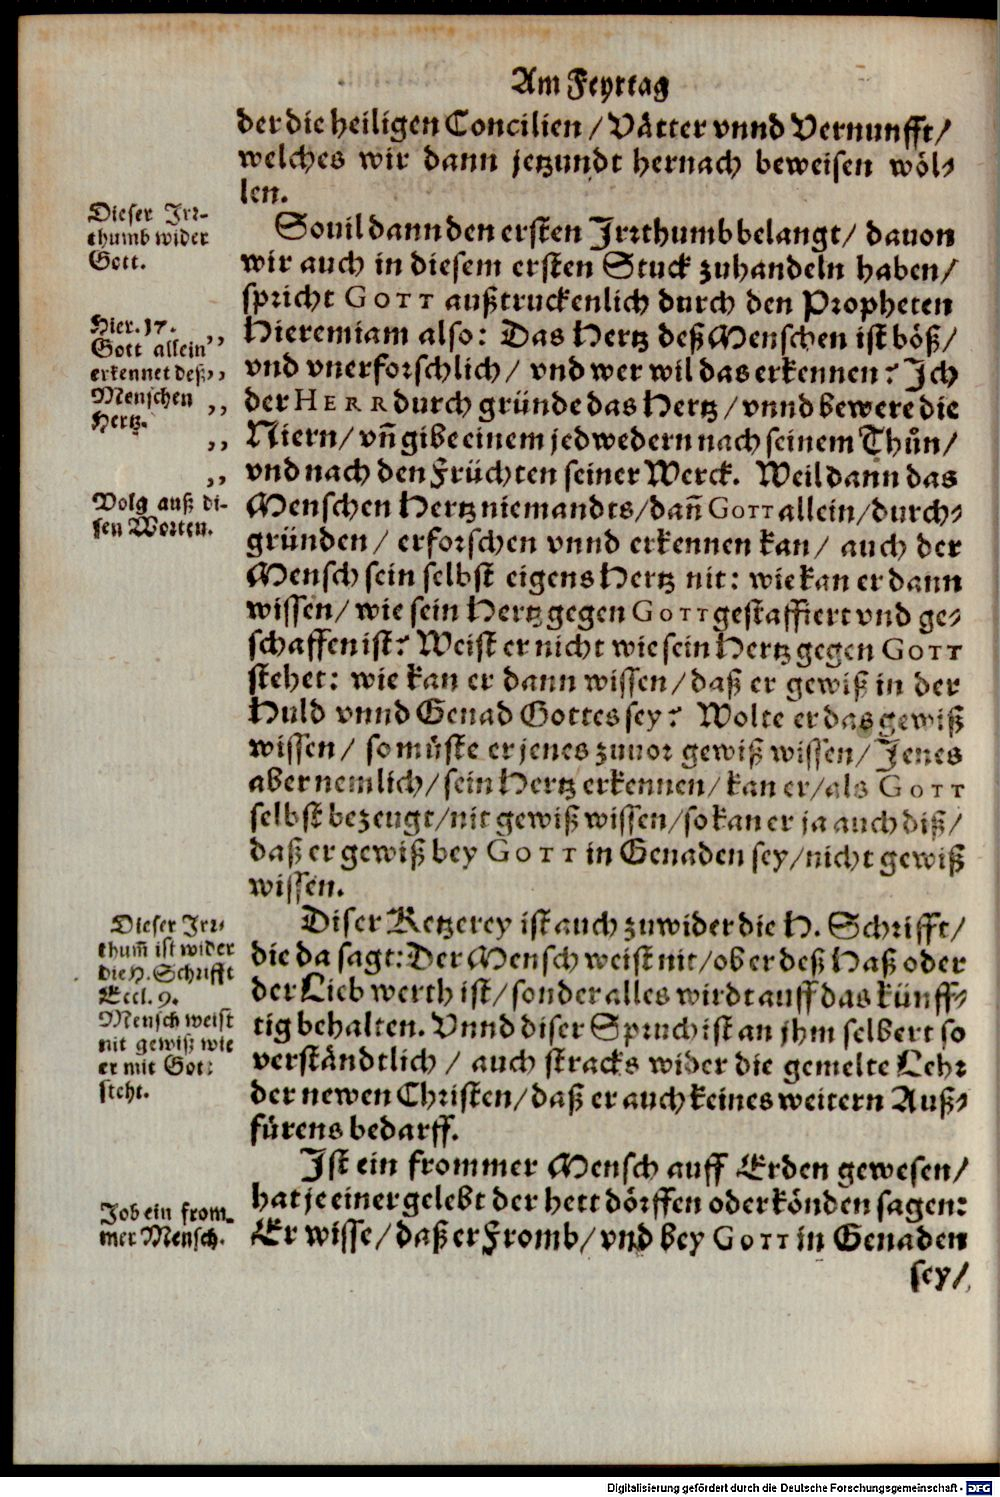 Am Feyrtag
der die heiligen Concilien / Vätter vnnd Vernunfft /
welches wir dann jetzundt hernach beweisen wöl-
len.
Dieser Irr-
thumb wider
Gott.
Souil dann den ersten Irrthumb belangt / dauon
wir auch in diesem ersten Stuck zuhandeln haben /
spricht GOTT außtruckenlich durch den Propheten
Hier. 17. ,,
Gott allein
erkennet deß ,,
Menschen ,,
Hertz.
,,
,,
Hieremiam also: Das Hertz deß Menschen ist böß /
vnd vnerforschlich / vnd wer wil das erkennen? Ich
der HERR durch gründe das Hertz / vnnd bewere die
Niern / vñ gibe einem jedwedern nach seinem Thůn /
vnd nach den Früchten seiner Werck. Weil dann das
Volg auß di-
sen Worten.
Menschen Hertz niemandts / dañ GOTT allein / durch-
gründen / erforschen vnnd erkennen kan / auch der
Mensch sein selbst eigens Hertz nit: wie kan er dann
wissen / wie sein Hertz gegen GOTT gestaffiert vnd ge-
schaffen ist? Weist er nicht wie sein Hertz gegen GOTT
stehet: wie kan er dann wissen / daß er gewiß in der
Huld vnnd Genad Gottes sey? Wolte er das gewiß
wissen / so müste er jenes zuuor gewiß wissen / Jenes
aber nemlich / sein Hertz erkennen / kan er / als GOTT
selbst bezeugt / nit gewiß wissen / so kan er ja auch diß /
daß er gewiß bey GOTT in Genaden sey / nicht gewiß
wissen.
Dieser Irr-
thum̃ ist wider
die H. Schrifft
Eccl. 9.
Mensch weist
nit gewiß wie
er mit Gott
steht.
Diser Ketzerey ist auch zuwider die H. Schrifft /
die da sagt: Der Mensch weist nit / ob er deß Haß oder
der Lieb werth ist / sonder alles wirdt auff das künff-
tig behalten. Vnnd diser Spruch ist an jhm selbert so
verständtlich / auch stracks wider die gemelte Lehr
der newen Christen / daß er auch keines weitern Auß-
fürens bedarff.
Ist ein frommer Mensch auff Erden gewesen /
hat je einer gelebt der hett dörffen oder könden sagen:
Job ein from-
mer Mensch.
Er wisse / daß er Fromb / vnd bey GOTT in Genaden
sey /
Digitalisierung gefördert durch die Deutsche Forschungsgemeinschaft - DFG